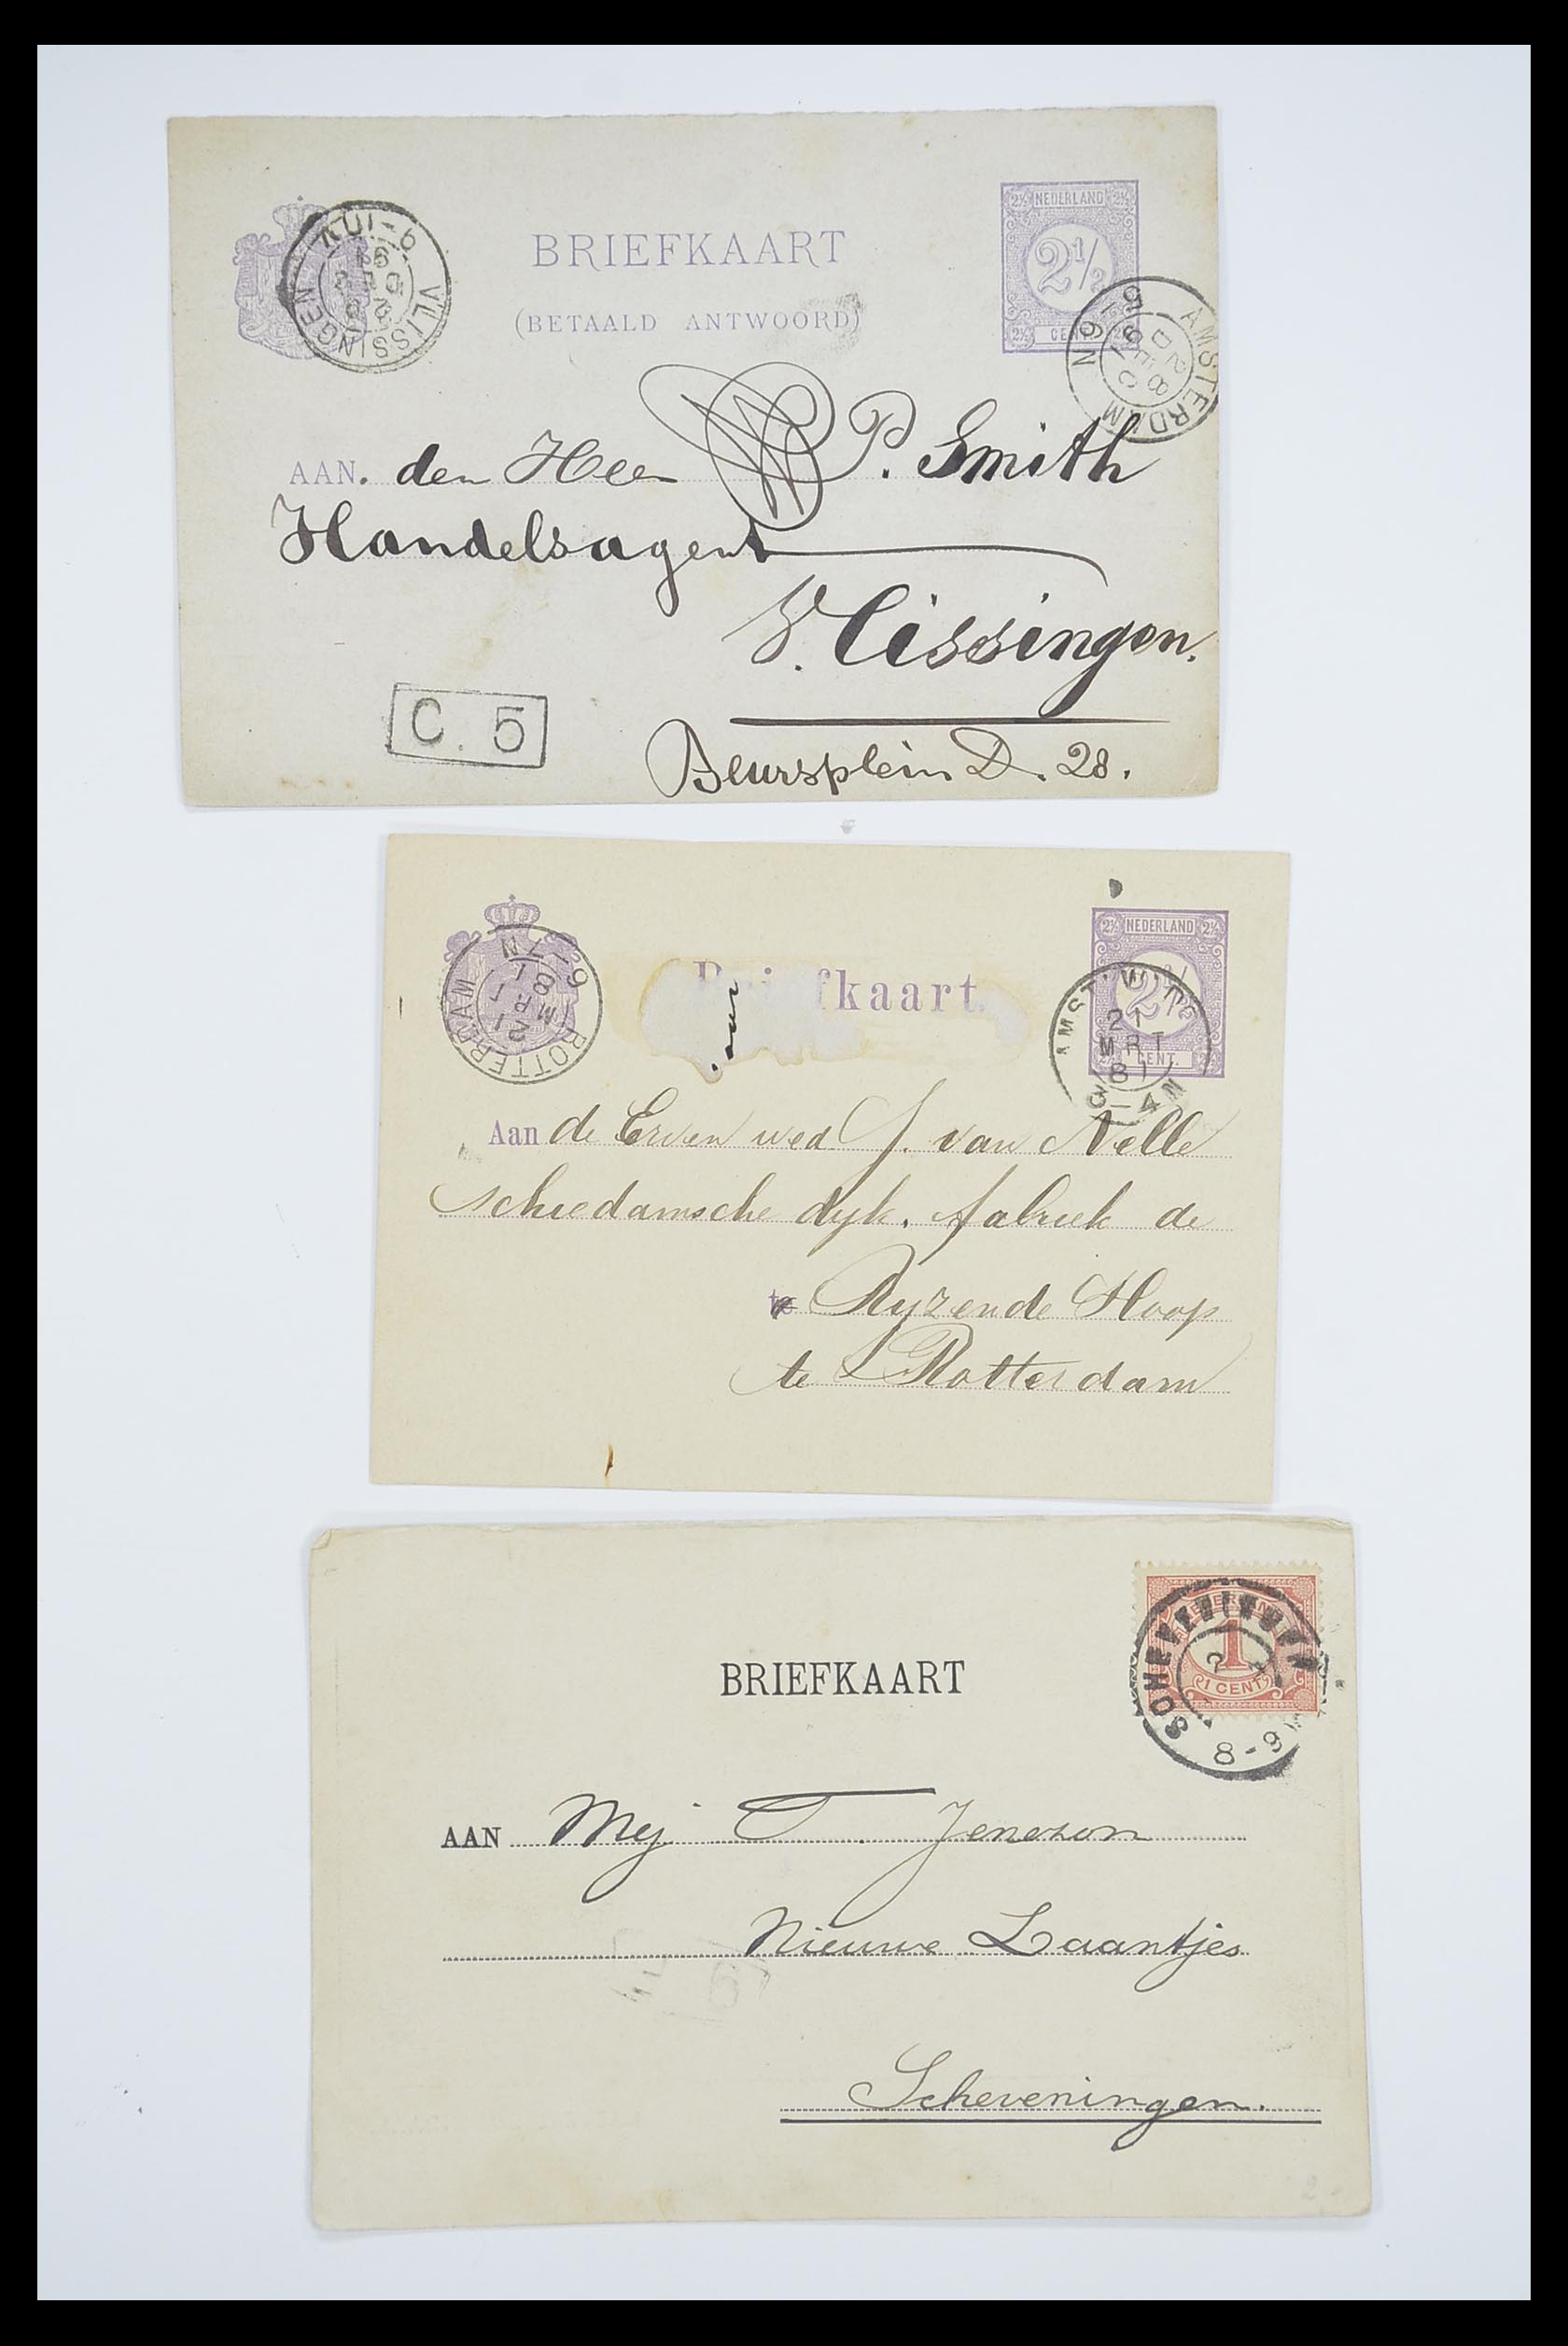 BRIEFKAART
(BETAALD ANTWOORD)
2½ NEDERLAND 2½
2½
2½ CENT
VLISSINGEN
AMSTERDAM
28 DEC 91
5-6N
AAN. den Heer W P. Smith
Handelsagent
Vlissingen.
C. 5
Beursplein D. 28.
Briefkaart.
2½ NEDERLAND 2½
2½
CENT.
ROTTERDAM
21 MRT 81
6-7N
21
MRT
81
3-4N
Aan de Erven wed J. van Nelle
schiedamsche dyk. fabriek de
te Ryzende Hoop
te Rotterdam
BRIEFKAART
1
1 CENT
SCHEVENINGEN
8-9
AAN Mej T. Jenezon
Nieuwe Laantjes
Scheveningen.